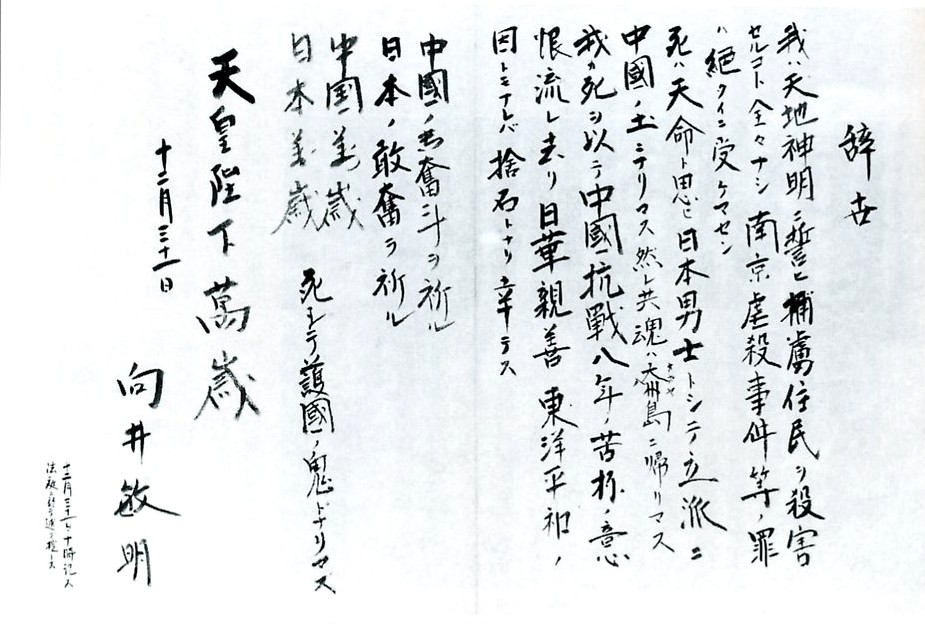 辞世
我ハ天地神明ニ誓ヒ捕虜住民ヲ殺害
セルコト全々ナシ南京虐殺事件等ノ罪
ハ絶タイニ受ケマセン
死ハ天命ト思ヒ日本男士トシテ立派ニ
中國ノ土ニナリマス然レ共魂ハ大八州島ニ帰リマス
我カ死ヲ以テ中國抗戰八年ノ苦杯ノ意
恨流レ去リ日華親善東洋平和ノ
因トモナレバ捨石トナリ幸テス
中國ノ奮斗ヲ祈ル
日本ノ敢奮ヲ祈ル
中国萬歳
日本萬歳
天皇陛下萬歳
死シテ護國ノ鬼トナリマス
十二月三十一日
向井敏明
十二月三十一日十時記ス